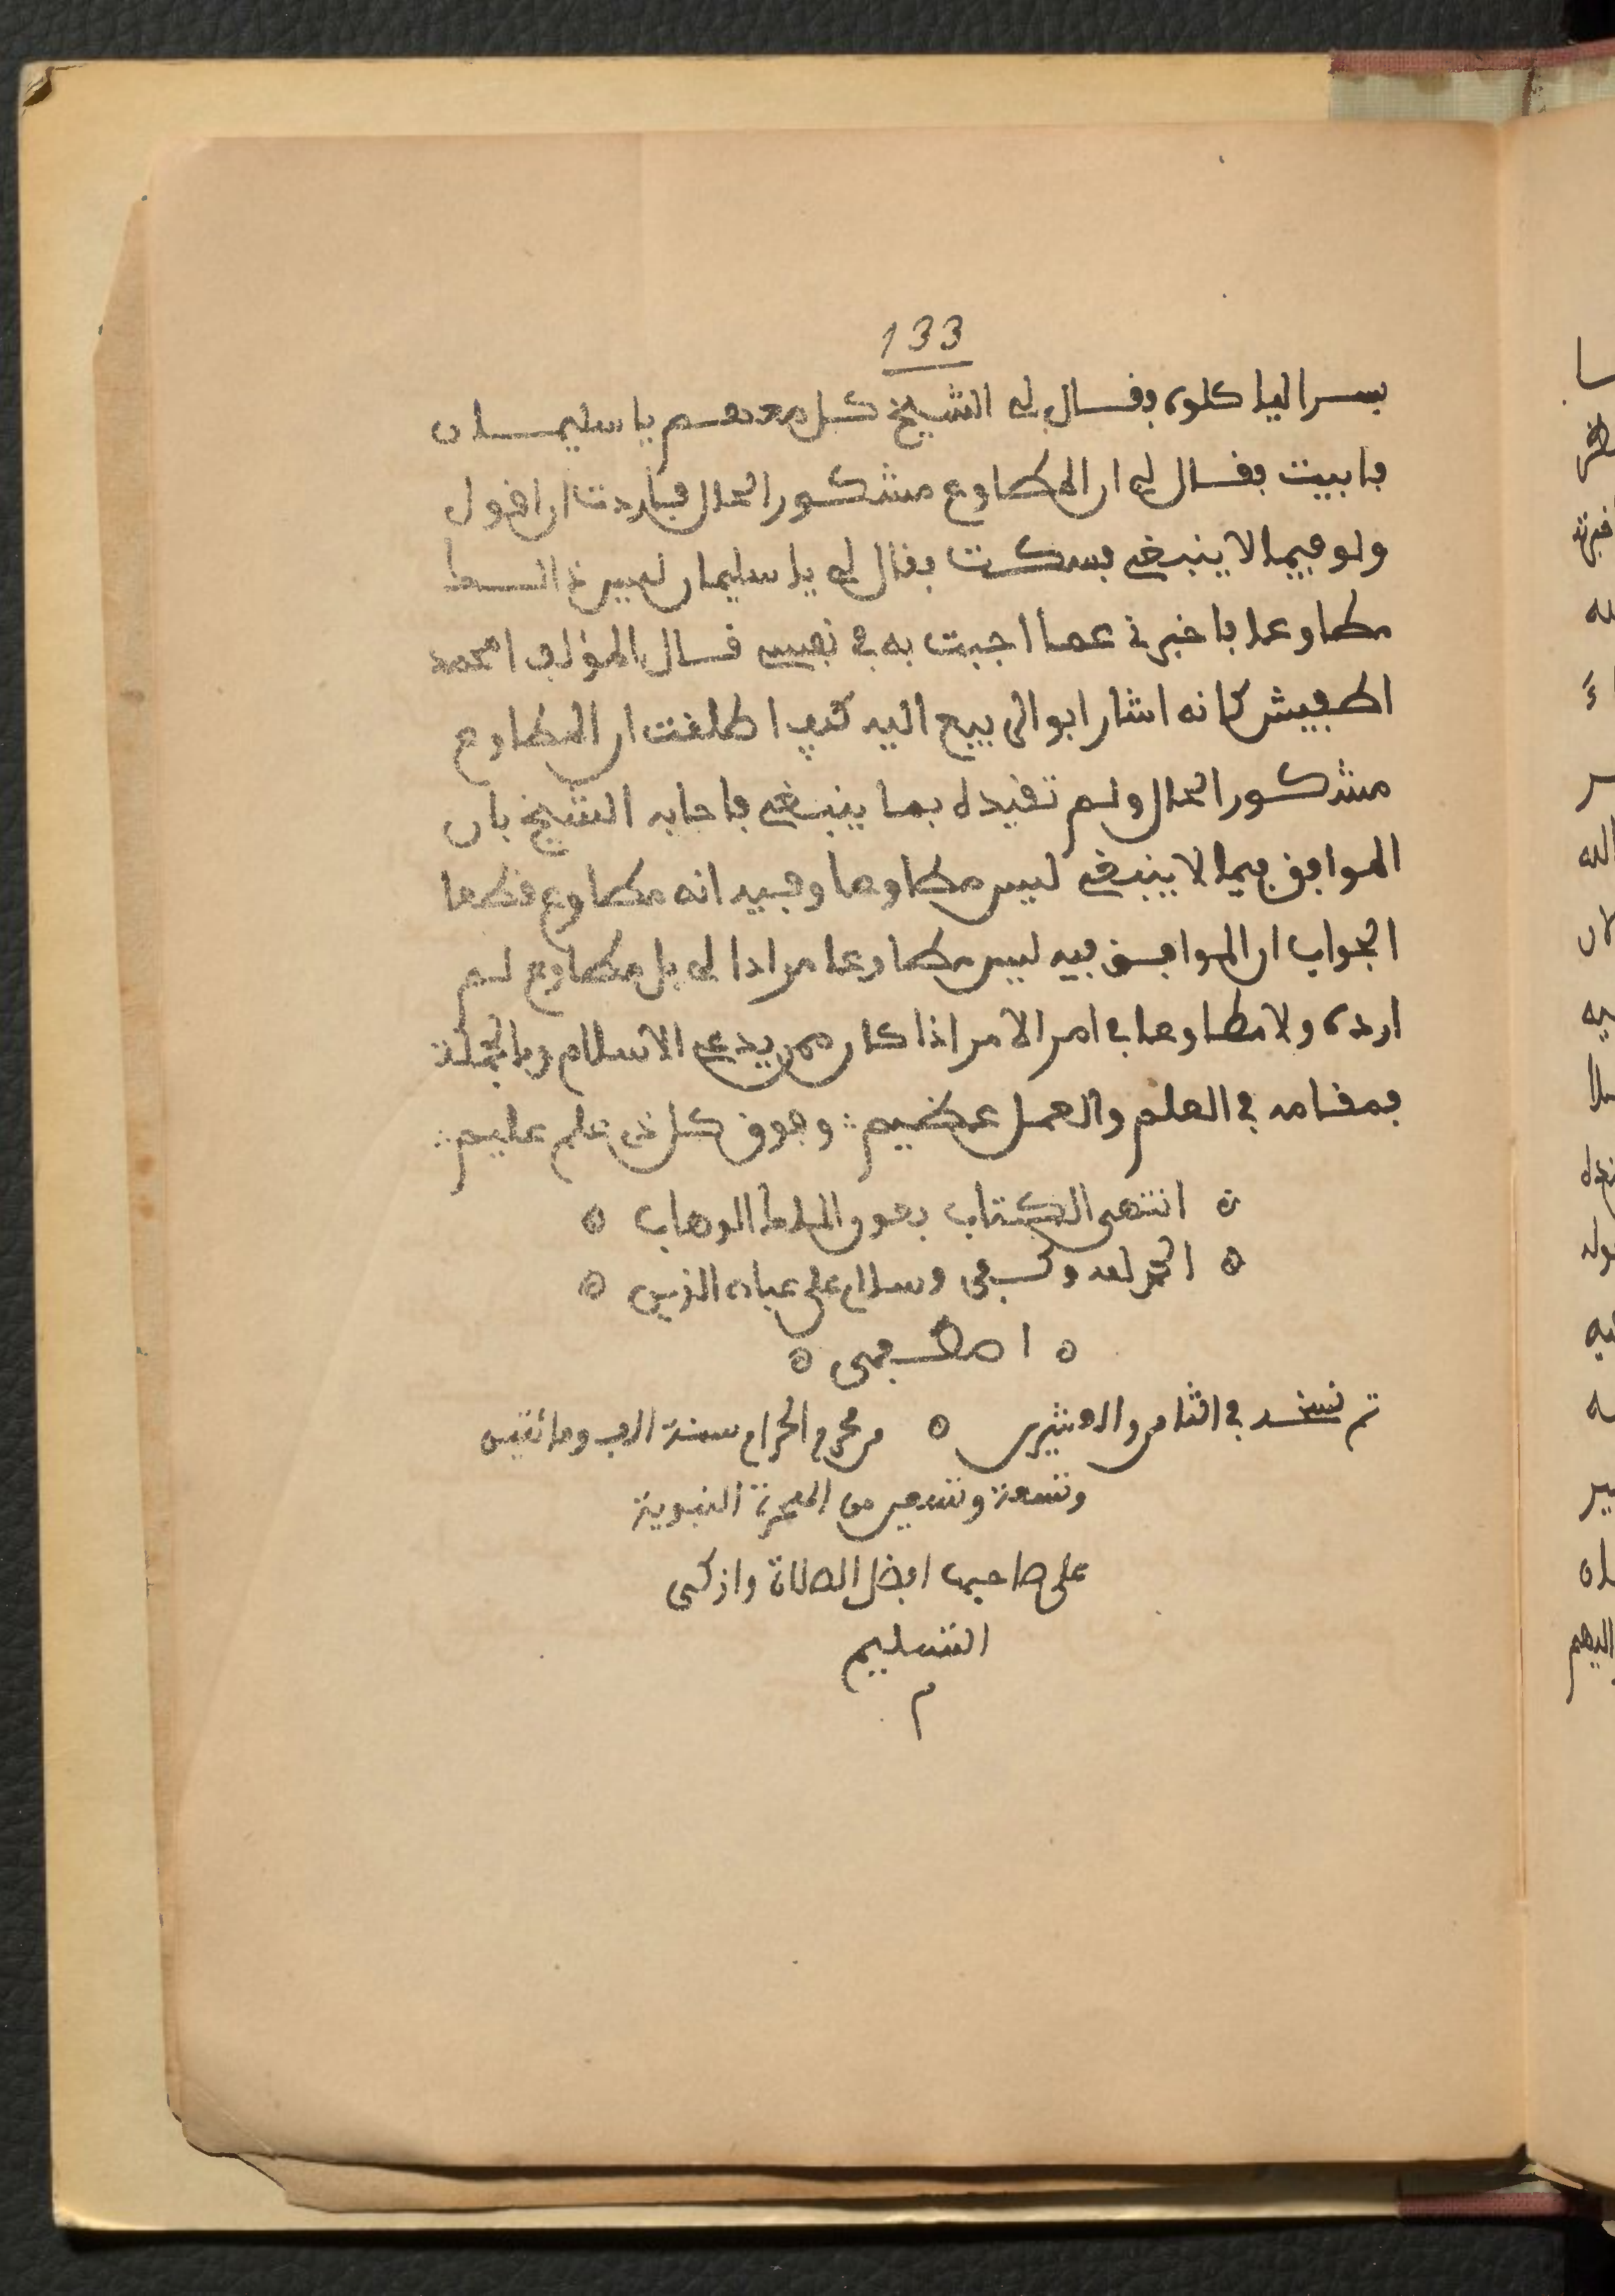 133
بسرا لياكلوه فقال لي الشيخ كل معهم يا سليمان
فابيت فقال لي ان المطاوع مشكور الحال فاردت ان اقول
ولو فيما لا ينبغي فسكت فقال لي يا سليمان ليس ذالك
مطاوعا فاخبرني عما اجبت به في نفسي قال المؤلف امحمد
اطفيش كانه اشار ابو الربيع اليه كيف اطلقت ان المطاوع
مشكور الحال ولم تقيده بما ينبغي فاجابه الشيخ بان
الموافق فيما لا ينبغي ليس مطاوعا وفيه انه مطاوع قطعا
الجواب ان الموافق فيه ليس مطاوعا مرادا لي بل مطاوع لم
ارده ولا مطاوعا في امر الامر اذا كان ممن يدعي الاسلام وبالجملة
فمقامه في العلم والعمل عظيم ∴ وفوق كل ذي علم عليم ∴
انتهى الكتاب بعون الملك الوهاب
الحمد لله وكفى وسلام على عباده الذين
اصطفى
تم نسخه في الثامن والعشرين من محرم الحرام سنة الف ومائتين
وتسعة وتسعين من الهجرة النبوية
على صاحبها افضل الصلاة وازكى
التسليم
م